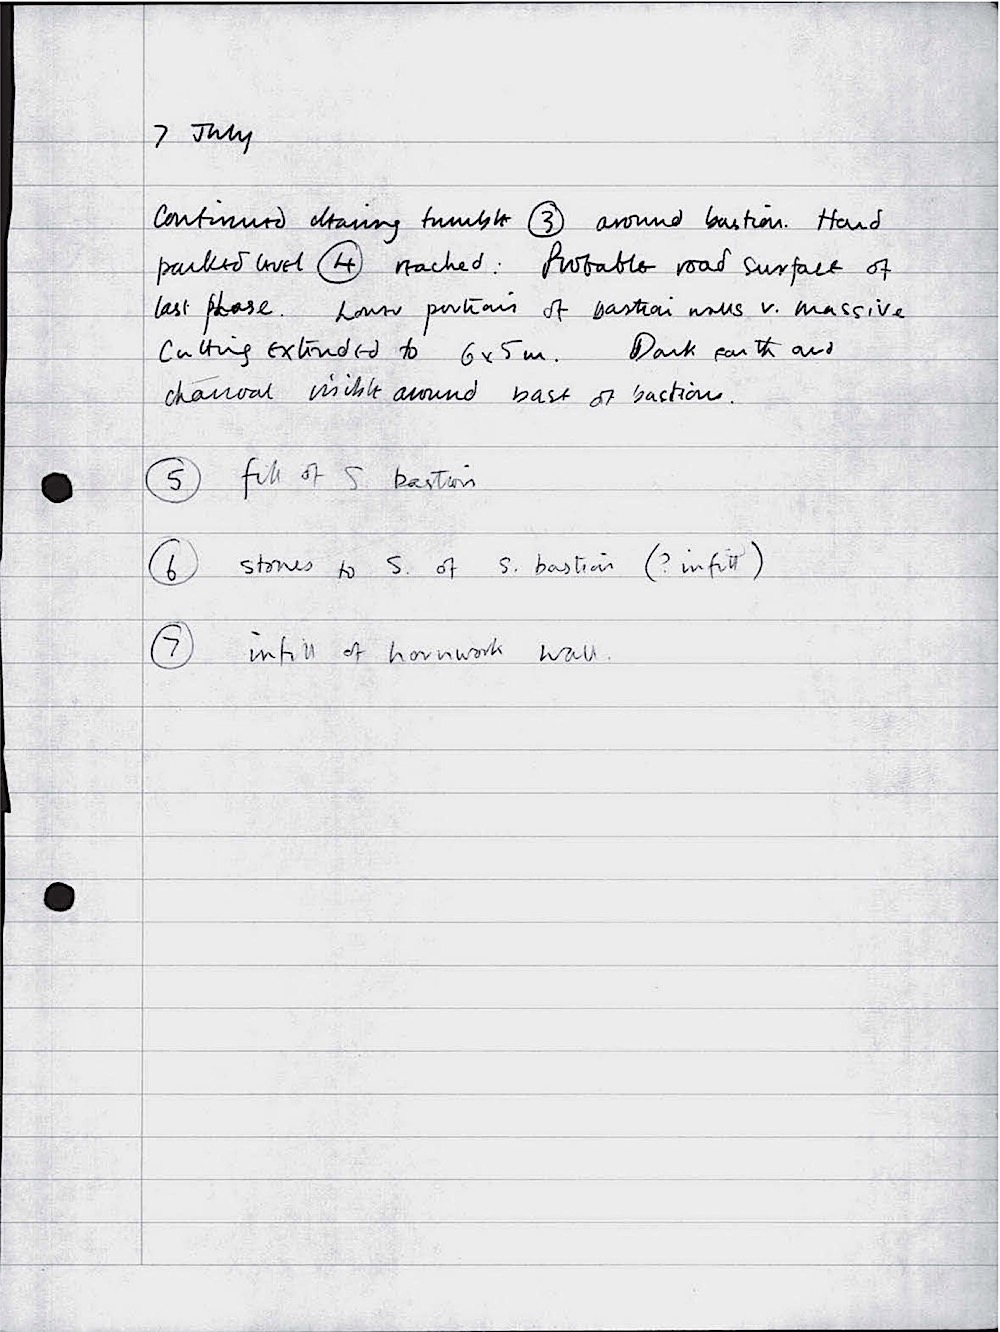 7 July
Continued clearing tumble ③ around bastion. Hard
packed level ④ reached: Probable road surface of
last phase. Lower portion of bastion walls v. massive
Cutting extended to 6x5m. Dark earth and
charcoal visible around base of bastions.
⑤ fill of S bastion
⑥ stones to S. of S. bastion (? infill)
⑦ infill of hornwork wall.